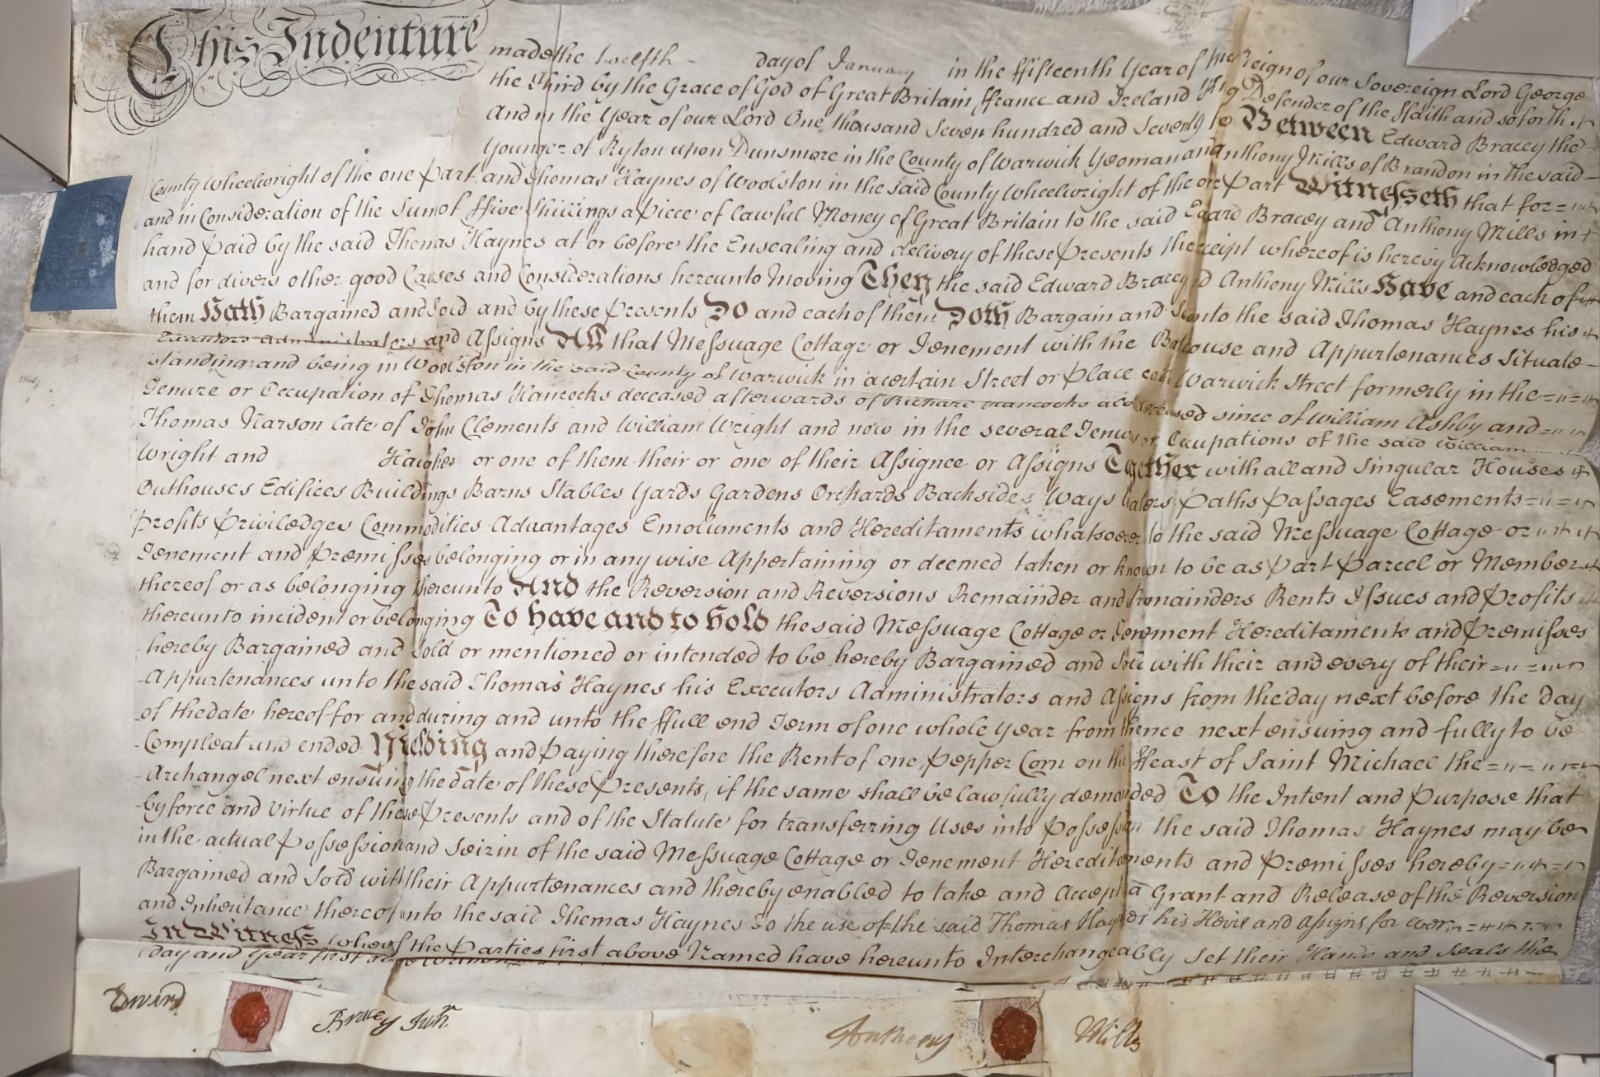 This Indenture made the twelfth day of January in the ffifteenth Year of the Reign of our Sovereign Lord George
the Third by the Grace of God of Great Britain ffrance and Ireland King Defender of the ffaith and so forth
And in the Year of our Lord One thousand Seven hundred and Seventy Between Edward Bracey the
Younger of Ryton upon Dunsmore in the County of Warwick Yeoman and Anthony Mills of Brandon in the said
County Wheelwright of the one Part and Thomas Haynes of Woolston in the said County Wheelwright of the or Part Witnesseth that for
and in Consideration of the Sum of ffive Shillings a Piece of lawful Money of Great Britain to the said Edward Bracey and Anthony Mills in
hand paid by the said Thomas Haynes at or before the Ensealing and delivery of these Presents the receipt whereof is hereby Acknowledged
and for divers other good Causes and Considerations hereunto moving They the said Edward Bracey and Anthony Mills Have and each of
them Hath Bargained and Sold and by these Presents Do and each of them Doth Bargain and Sell unto the said Thomas Haynes his
Executors Administrators and Assigns All that Messuage Cottage or Tenement with the Backhouse and Appurtenances Situate
standing and being in Woolston in the said County of Warwick in a certain Street or place called Warwick Street formerly in the
Tenure or Occupation of Thomas Hancocks deceased afterwards of Richard Hancocks also deceased since of William Ashby and
Thomas Narson late of John Clements and William Wright and now in the several Tenures or Occupations of the said William
Wright and Hawkes or one of them their or one of their Assignee or Assigns Together with all and Singular Houses
Outhouses Edifices Buildings Barns Stables Yards Gardens Orchards Backsides Ways Waters Paths Passages Easements
Profits Priviledges Commodities Advantages Emoluments and Hereditaments whatsoever to the said Messuage Cottage or
Tenement and Premisses belonging or in any wise Appertaining or deemed taken or known to be as Part Parcel or Member
thereof or as belonging thereunto And the Reversion and Reversions Remainder and Remainders Rents Issues and Profits
thereunto incident or belonging To have and to hold the said Messuage Cottage or Tenement Hereditaments and Premisses
hereby Bargained and Sold or mentioned or intended to be hereby Bargained and Sold with their and every of their
Appurtenances unto the said Thomas Haynes his Executors Administrators and Assigns from the day next before the day
of the date hereof for and during and unto the ffull end Term of one whole Year from thence next ensuing and fully to be
Compleat and ended Yielding and Paying therefore the Rent of one Pepper Corn on the ffeast of Saint Michael the
Archangel next ensuing the date of these Presents, if the same shall be lawfully demanded To the Intent and Purpose that
by force and virtue of these Presents and of the Statute for transferring Uses into Possession the said Thomas Haynes may be
in the actual Possession and Seizin of the said Messuage Cottage or Tenement Hereditaments and Premisses hereby
Bargained and Sold with their Appurtenances and thereby enabled to take and Accept a Grant and Release of the Reversion
and Inheritance thereof unto the said Thomas Haynes To the use of the said Thomas Haynes his Heirs and assigns for ever
In Witness whereof the Parties first above Named have hereunto Interchangeably set their Hands and Seals the
Day and Year first
Edward Bracey Junr Anthony Mills